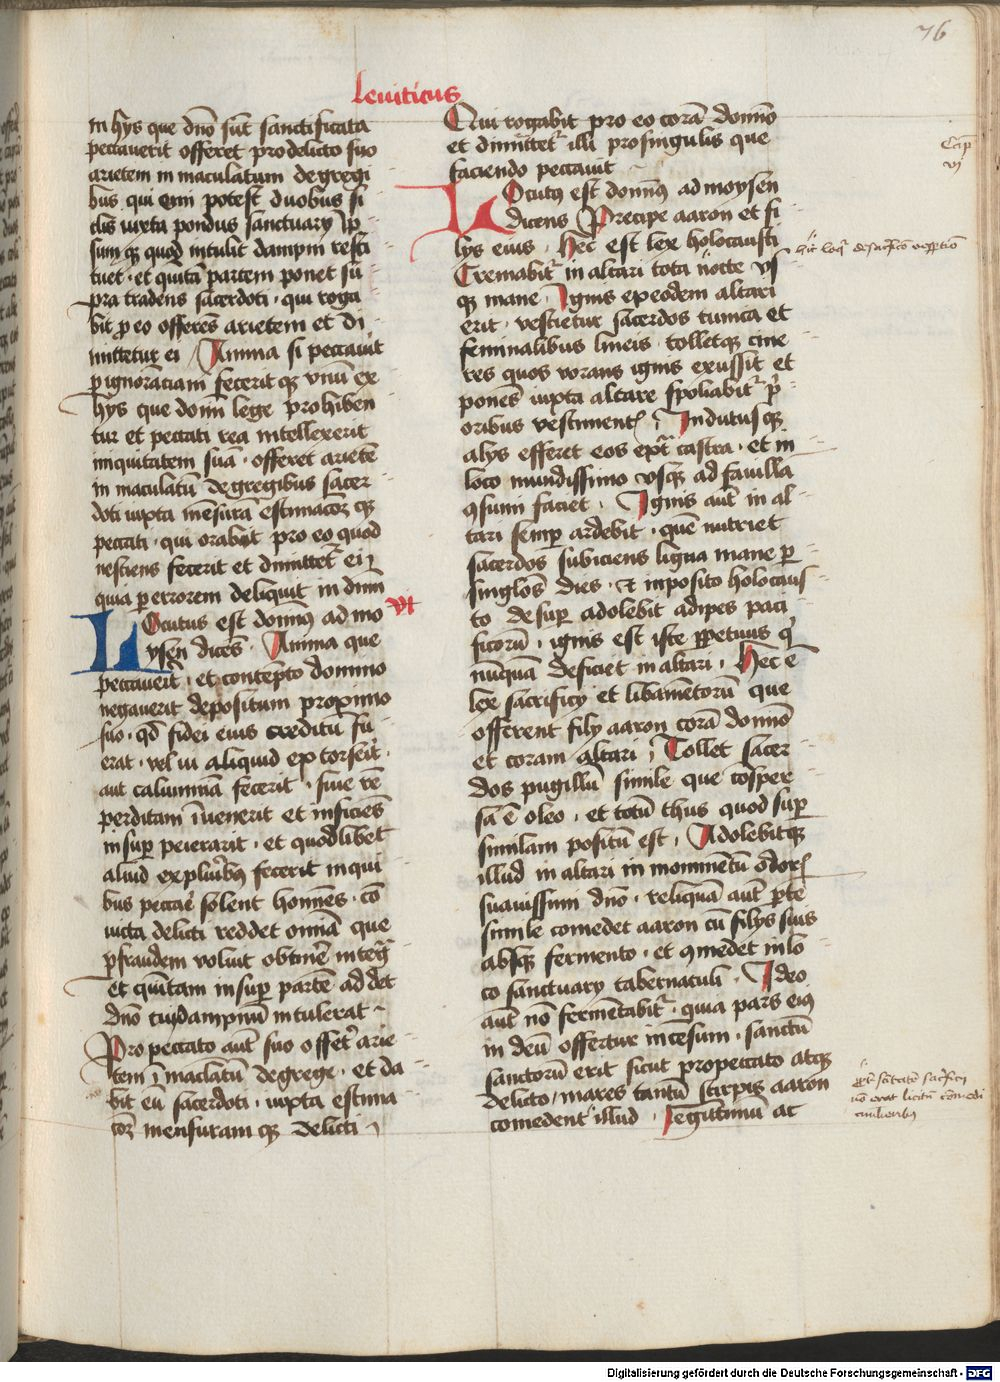 76
leuiticus
in hijs que dno sunt sanctificata
peccauerit offeret pro delicto suo
arietem in maculatum de gregi
bus qui emi potest duobus si
clis iuxta pondus sanctuarij ip
sum qz quod intulit dampni resti
tuet · et quintā partem ponet su
pra tradens sacerdoti · qui roga
bit p eo offerēs arietem et di
mittetur ei Anima si peccauit
p ignorāciam fecerit qz vnū ex
hijs que domi lege prohiben
tur et peccati rea intellexerit
iniquitatem suā · offeret arietē
in maculatū de gregibus sacer
doti iuxta mēsurā estimacōz qz
peccati · qui orabit pro eo quod
nesciens fecerit et dimittetr ei
quia p errorem deliquit in dnm
VI
LOcutus est domins ad mo
ysen dicēs · Anima que
peccauerit · et contēpto domino
negauerit depositum proximo
suo · qd fidei eius creditū fu
erat · vel vi aliquid extorserit
aut calumniā fecerit · siue rē
perditam īuenerit et inficiēs
insup peierarit · et quodlibet
aliud ex pluribus fecerit in qui
bus peccare solent homines · cō
uicta delicti reddet omnia que
p fraudem voluit obtinere integra
et quintam insup partē ad det
dno cui dampnum intulerat
Pro peccato aut suo offeret arie
tem īmaclatū de grege · et da
bit eū sacerdoti · iuxta estima
coz mensuram qz delicti
Qui rogabit pro eo corā domino
et dimittetr illi pro singulis que
faciendo peccauit
Cap
vj
LOcutus est domins ad moysen
dicens Precipe aaron et fi
lijs eius · Hec est lex holocausti
Cremabitr in altari tota nocte vs
qz mane · Ignis ex eodem altari
erit · vestietur sacerdos tunica et
feminalibus lineis · tolletqz cine
res quos vorans ignis exussit et
ponēs iuxta altare spoliabitr pri
oribus vestimentis Indutusqz
alijs efferet eos extra castra · et in
loco mundissimo vsqz ad fauilla
9sumi faciet · Ignis aut in al
tari semp ardebit · quē nutriet
sacerdos subiciens ligna mane p
singlos dies · Et inposito holocaus
to de sup adolebit adipes paci
ficorū · ignis est iste ppetuus q
nunquā deficiet in altari · Hec ē
lex sacrificij et libamētorū que
offerent filij aaron corā domino
et coram altari Tollet sacer
dos pugillū simile que cōsper
sa ē oleo · et totū thus quod sup
similam positū est · Adolebitqz
illud in altari in monimētū odoris
suauissimi dno · reliquā aut ptē
simile comedet aaron cū filijs suis
absqz fermento · et 9medet in lo
co sanctuarij tabernaculi · Ideo
aut nō fermētabitr · quia pars eius
in deū offertur incēsum · sanctū
sanctorū erit sicut pro peccato atqz
delicto / mares tantū stirpis aaron
comedent illud · legitimū ac
nō erat licitū comedi
Digitalisierung gefördert durch die Deutsche Forschungsgemeinschaft - DFG